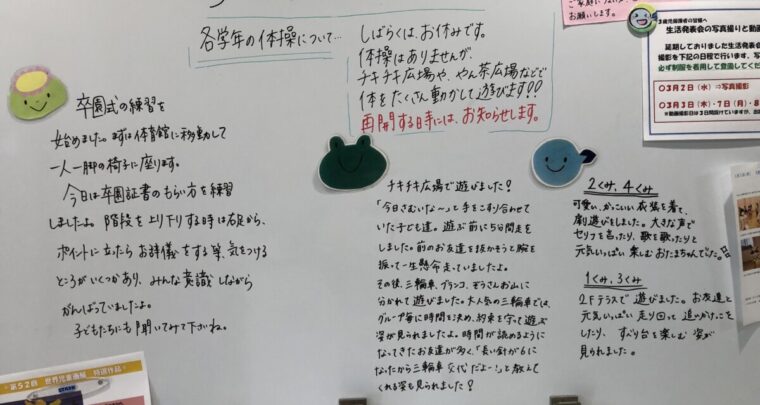 各学年の体操について…
しばらくは、お休みです。
体操はありませんが、
チキチキ広場や、やん茶広場などで
体をたくさん動かして遊びます!!
再開する時には、お知らせします。
お願いします。
3歳児保護者の皆様へ
生活発表会の写真撮りと動画
延期しておりました生活発表会
撮影を下記の日程で行います。
必ず制服を着用して登園してくだ
○3月2日(水)⇒写真撮影
○3月3日(木)・7日(月)・8
卒園式の練習を
始めました。まずは体育館に移動して
一人一脚の椅子に座ります。
今日は卒園証書のもらい方を練習
しましたよ。階段を上り下りする時は右足から、
ポイントに立ったらお辞儀をする等、気をつける
ところがいくつかあり、みんな意識しながら
がんばっていましたよ。
子どもたちにも聞いてみて下さいね。
チキチキ広場で遊びました!
「今日さむいな~」と手をこすり合わせて
いた子ども達。遊ぶ前に5分間走を
しました。前のお友達を抜かそうと腕を
振って一生懸命走っていましたよ。
その後、三輪車、ブランコ、ぞうさんお山に
分かれて遊びました。大人気の三輪車では、
グループ毎に時間を決め、約束を守って遊ぶ
姿が見られましたよ。時間が読めるように
なってきたお友達が多く、「長い針が6に
なったから三輪車交代だよー!」と教えて
くれる姿も見られました!
2くみ、4くみ
可愛い、かっこいい衣装を着て、
劇遊びをしました。大きな声で
セリフを言ったり、歌を歌ったりと
元気いっぱい楽しむおたまちゃんでした。
1くみ、3くみ
2Fテラスで遊びました。お友達と
元気いっぱい走り回って追いかけっこを
したり、すべり台を楽しむ姿が
見られました。
第52回 世界児童画展 特選作品